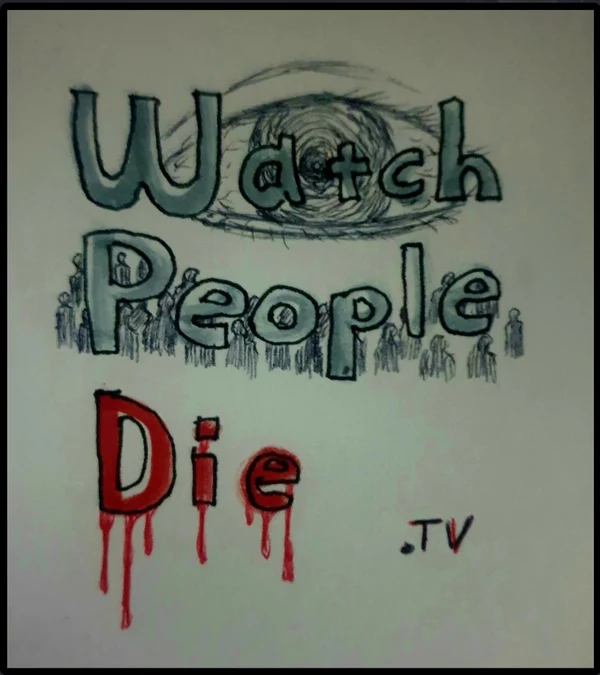 Watch
People
Die
.TV